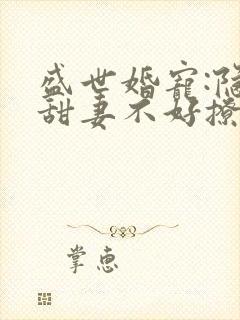 盛世婚宠:隐
甜妻不好撩
掌惠